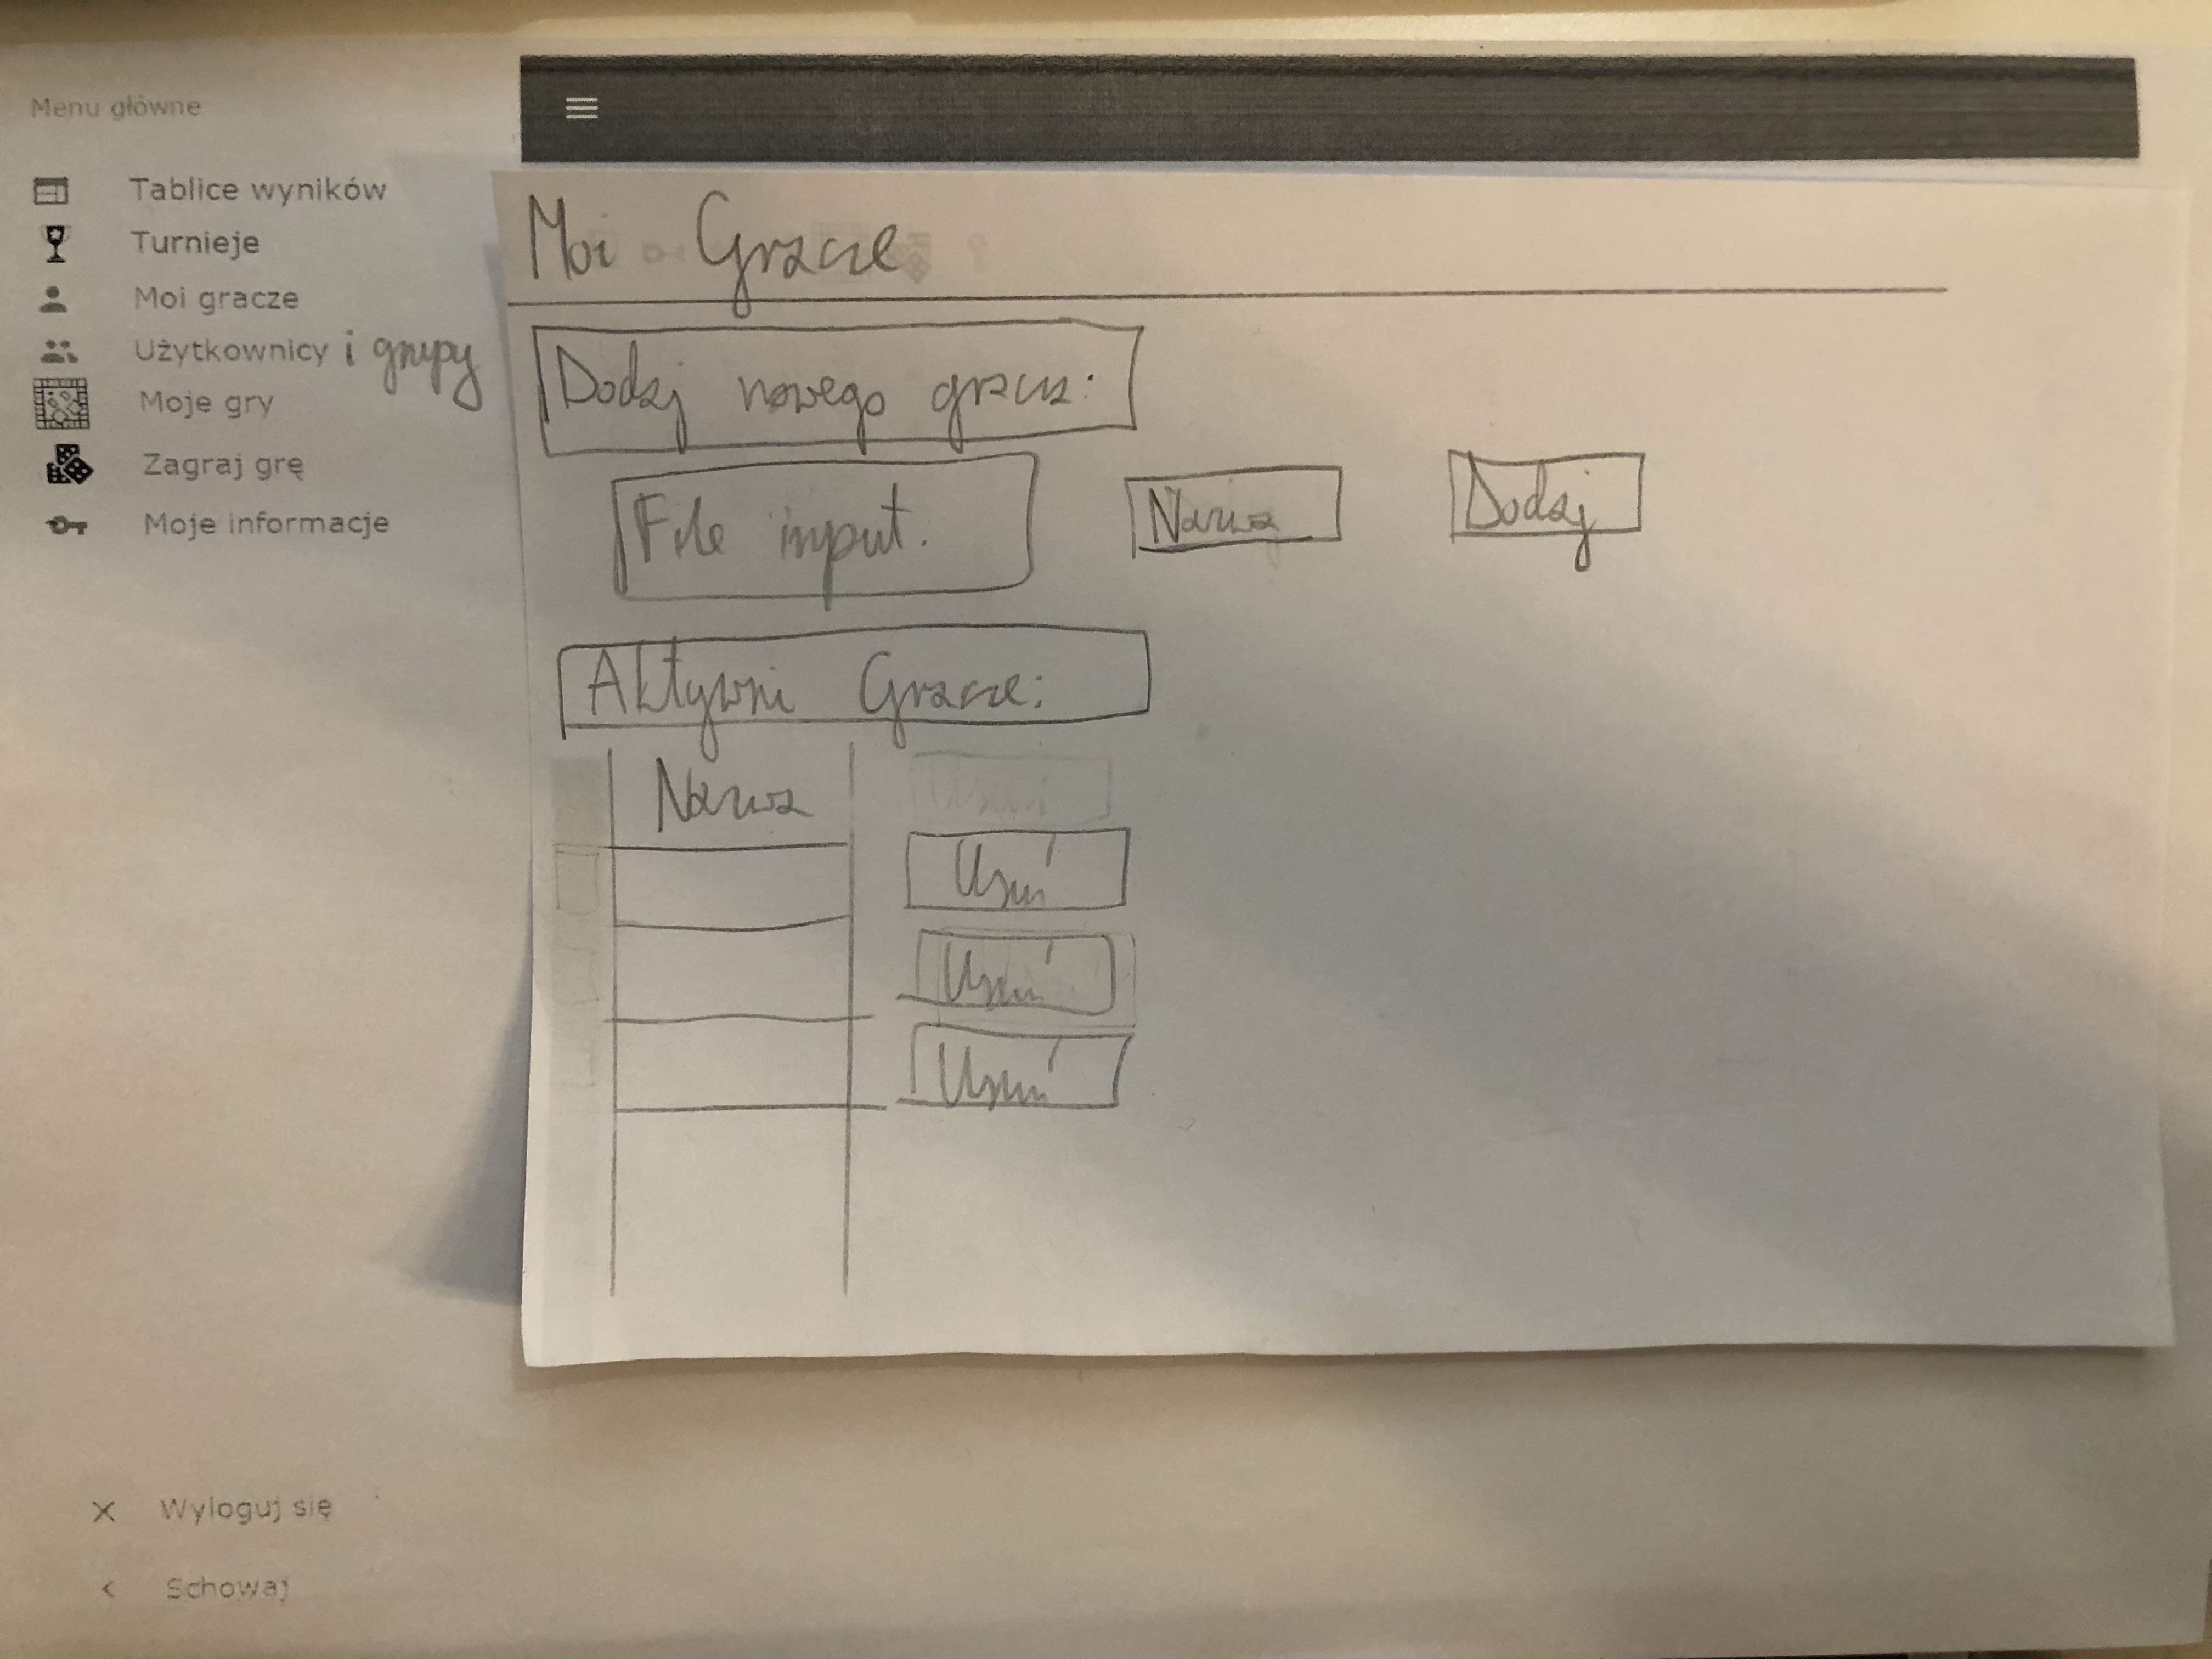 Menu główne
Tablice wyników
Turnieje
Moi gracze
Użytkownicy i grupy
Moje gry
Zagraj grę
Moje informacje
Moi Gracze
Dodaj nowego gracza:
File input.
Nazwa
Dodaj
Aktywni Gracze:
Nazwa
Usuń
Usuń
Usuń
Usuń
Wyloguj się
Schowaj